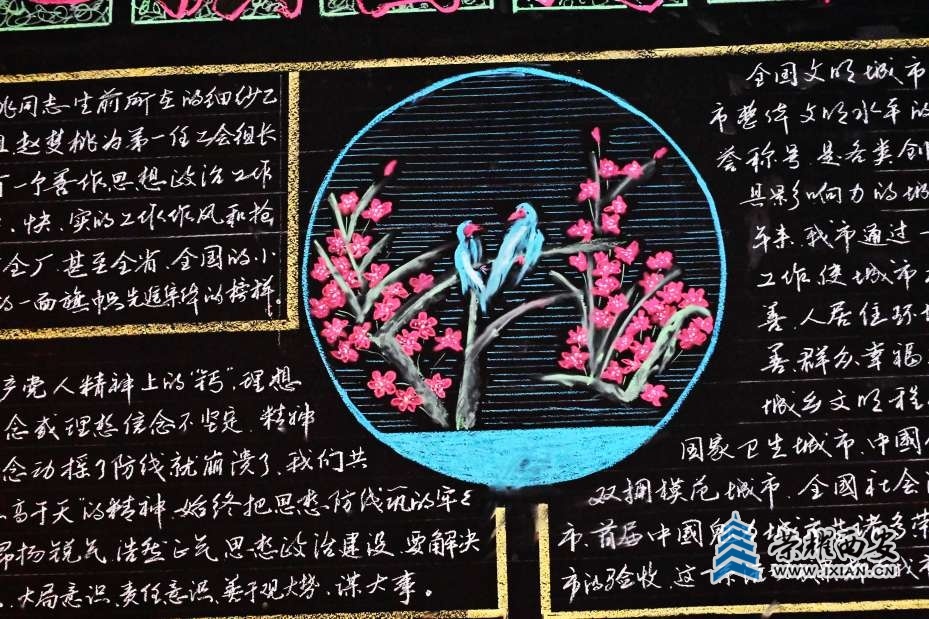 姚同志生前所在的细纱乙
组赵梦桃为第一任工会组长
有一个善作思想政治工作
快、实的工作作风和抢
全厂、甚至全省、全国的小
的一面旗帜先进集体的榜样。
产党人精神上的“钙”,理想
念或理想信念不坚定,精神
念动摇了防线就崩溃了,我们共
高于天”的精神,始终把思想防线筑的牢
昂扬锐气,浩然正气,思想政治建设,要解决
、大局意识、责任意识、善于观大势、谋大事。
全国文明城市
市整体文明水平的
誉称号,是各类创
具影响力的城
年来,我市通过一
工作,使城市
善,人居住环境
善,群众幸福
城乡文明程
国家卫生城市、中国
双拥模范城市、全国社会
市、首届中國 城市等诸多荣
市的验收,这
荣耀西安
WWW.IXIAN.CN